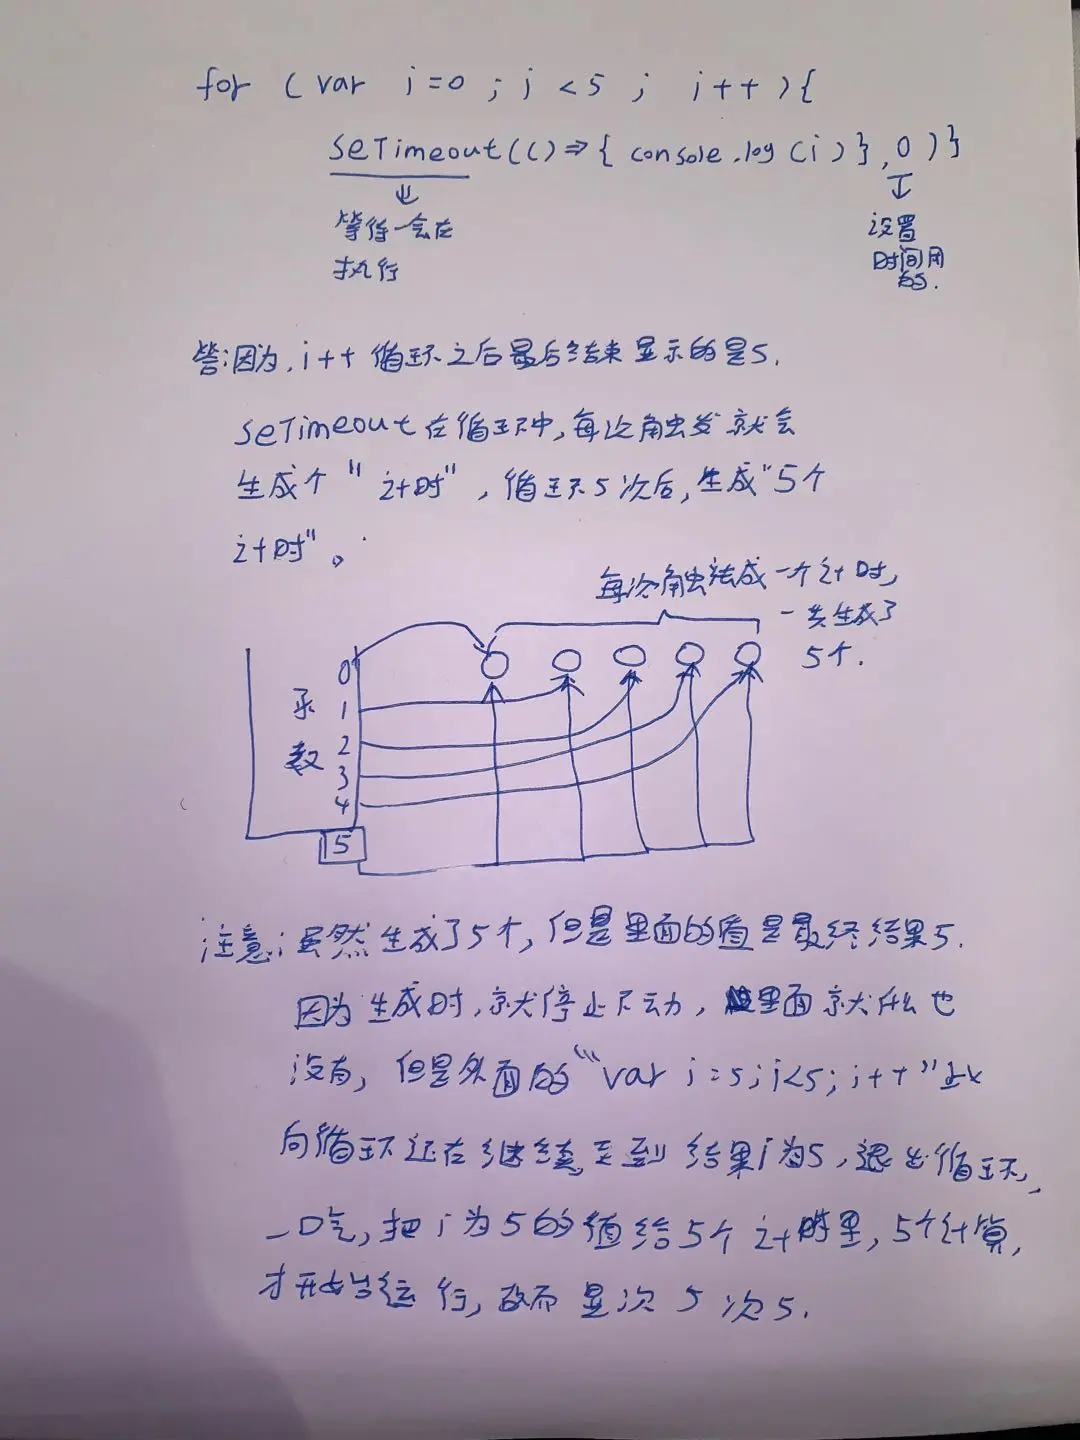 for (var i=0 ; i <5 ; i++){
seTimeout(()=>{ console.log(i)},0)}
等待一会在
执行
设置
时间用
的.
答:因为,i++循环之后最后结束显示的是5.
seTimeout在循环中,每次触发就会
生成个"计时",循环5次后,生成"5个
计时"。
每次触发生成一个计时,
一共生成了
5个.
0
1
2
3
4
5
注意:虽然生成了5个,但是里面的值是最终结果5.
因为生成时,就停止不动,里面就什么也
没有,但是外面的"var i=5;i<5;i++"
向循环还在继续,至到结果i为5,退出循环,
一口气,把i为5的值给5个计时里,5个计算,
才开始运行,故而显次5次5.